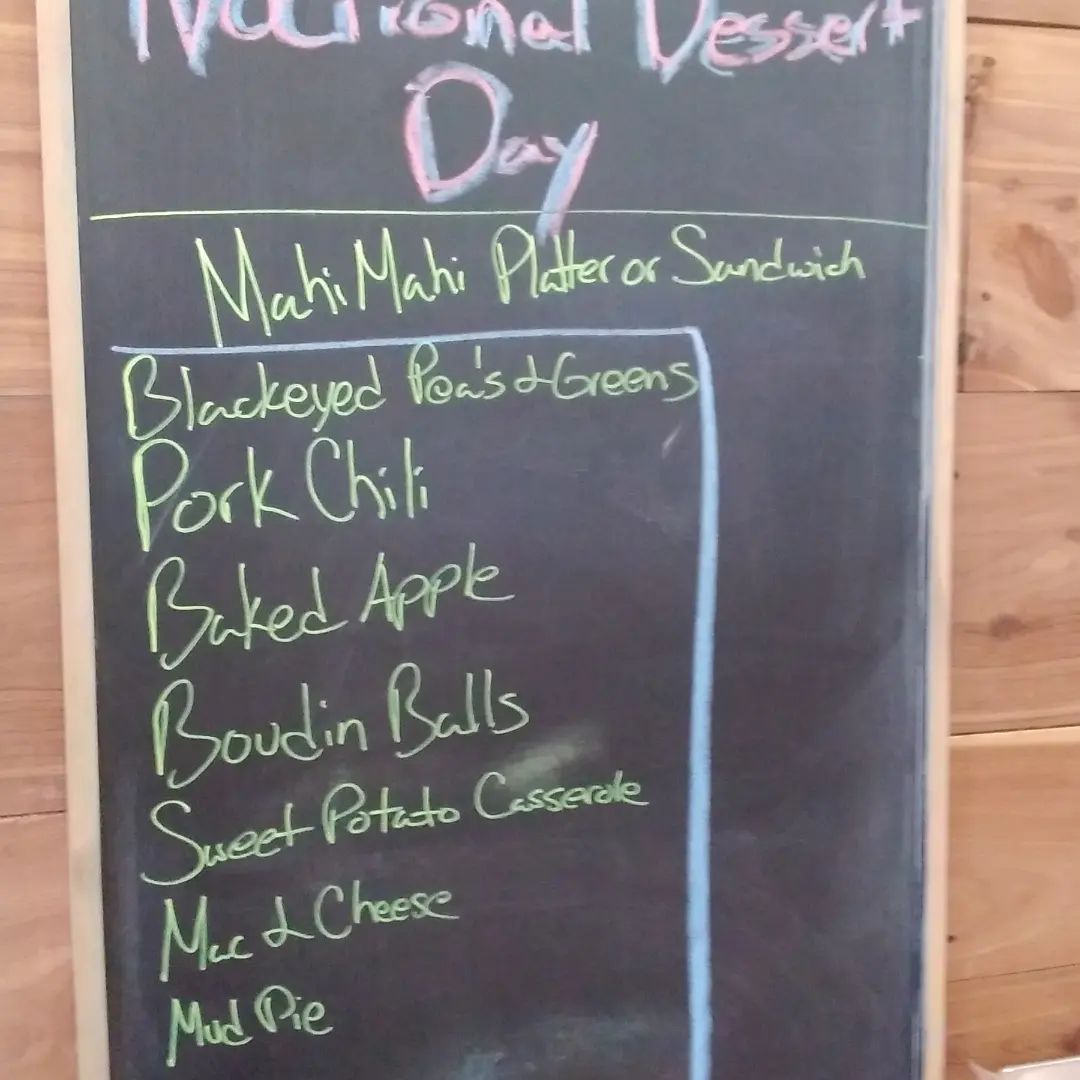 National Dessert
Day
Mahi Mahi Platter or Sandwich
Blackeyed Pea's & Greens
Pork Chili
Baked Apple
Boudin Balls
Sweet Potato Casserole
Mac & Cheese
Mud Pie